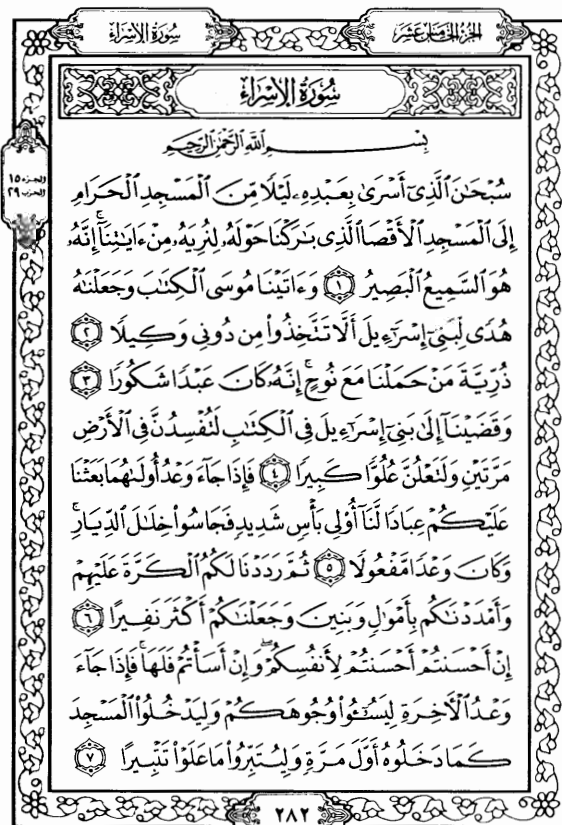 سُورَةُ الإِسْرَاءِ
الجُزْءُ الخَامِسَ عَشَرَ
سُورَةُ الإِسْرَاءِ
بِسْمِ ٱللَّهِ ٱلرَّحْمَٰنِ ٱلرَّحِيمِ
الجزء ١٥
الحزب ٢٩
سُبْحَٰنَ ٱلَّذِىٓ أَسْرَىٰ بِعَبْدِهِۦ لَيْلًا مِّنَ ٱلْمَسْجِدِ ٱلْحَرَامِ
إِلَى ٱلْمَسْجِدِ ٱلْأَقْصَا ٱلَّذِى بَٰرَكْنَا حَوْلَهُۥ لِنُرِيَهُۥ مِنْ ءَايَٰتِنَآ ۚ إِنَّهُۥ
هُوَ ٱلسَّمِيعُ ٱلْبَصِيرُ ۝١ وَءَاتَيْنَا مُوسَى ٱلْكِتَٰبَ وَجَعَلْنَٰهُ
هُدًى لِّبَنِىٓ إِسْرَٰٓءِيلَ أَلَّا تَتَّخِذُوا۟ مِن دُونِى وَكِيلًا ۝٢
ذُرِّيَّةَ مَنْ حَمَلْنَا مَعَ نُوحٍ ۚ إِنَّهُۥ كَانَ عَبْدًا شَكُورًا ۝٣
وَقَضَيْنَآ إِلَىٰ بَنِىٓ إِسْرَٰٓءِيلَ فِى ٱلْكِتَٰبِ لَتُفْسِدُنَّ فِى ٱلْأَرْضِ
مَرَّتَيْنِ وَلَتَعْلُنَّ عُلُوًّا كَبِيرًا ۝٤ فَإِذَا جَآءَ وَعْدُ أُولَىٰهُمَا بَعَثْنَا
عَلَيْكُمْ عِبَادًا لَّنَآ أُو۟لِى بَأْسٍ شَدِيدٍ فَجَاسُوا۟ خِلَٰلَ ٱلدِّيَارِ ۚ
وَكَانَ وَعْدًا مَّفْعُولًا ۝٥ ثُمَّ رَدَدْنَا لَكُمُ ٱلْكَرَّةَ عَلَيْهِمْ
وَأَمْدَدْنَٰكُم بِأَمْوَٰلٍ وَبَنِينَ وَجَعَلْنَٰكُمْ أَكْثَرَ نَفِيرًا ۝٦
إِنْ أَحْسَنتُمْ أَحْسَنتُمْ لِأَنفُسِكُمْ ۖ وَإِنْ أَسَأْتُمْ فَلَهَا ۚ فَإِذَا جَآءَ
وَعْدُ ٱلْءَاخِرَةِ لِيَسُۥٓـُٔوا۟ وُجُوهَكُمْ وَلِيَدْخُلُوا۟ ٱلْمَسْجِدَ
كَمَا دَخَلُوهُ أَوَّلَ مَرَّةٍ وَلِيُتَبِّرُوا۟ مَا عَلَوْا۟ تَتْبِيرًا ۝٧
٢٨٢